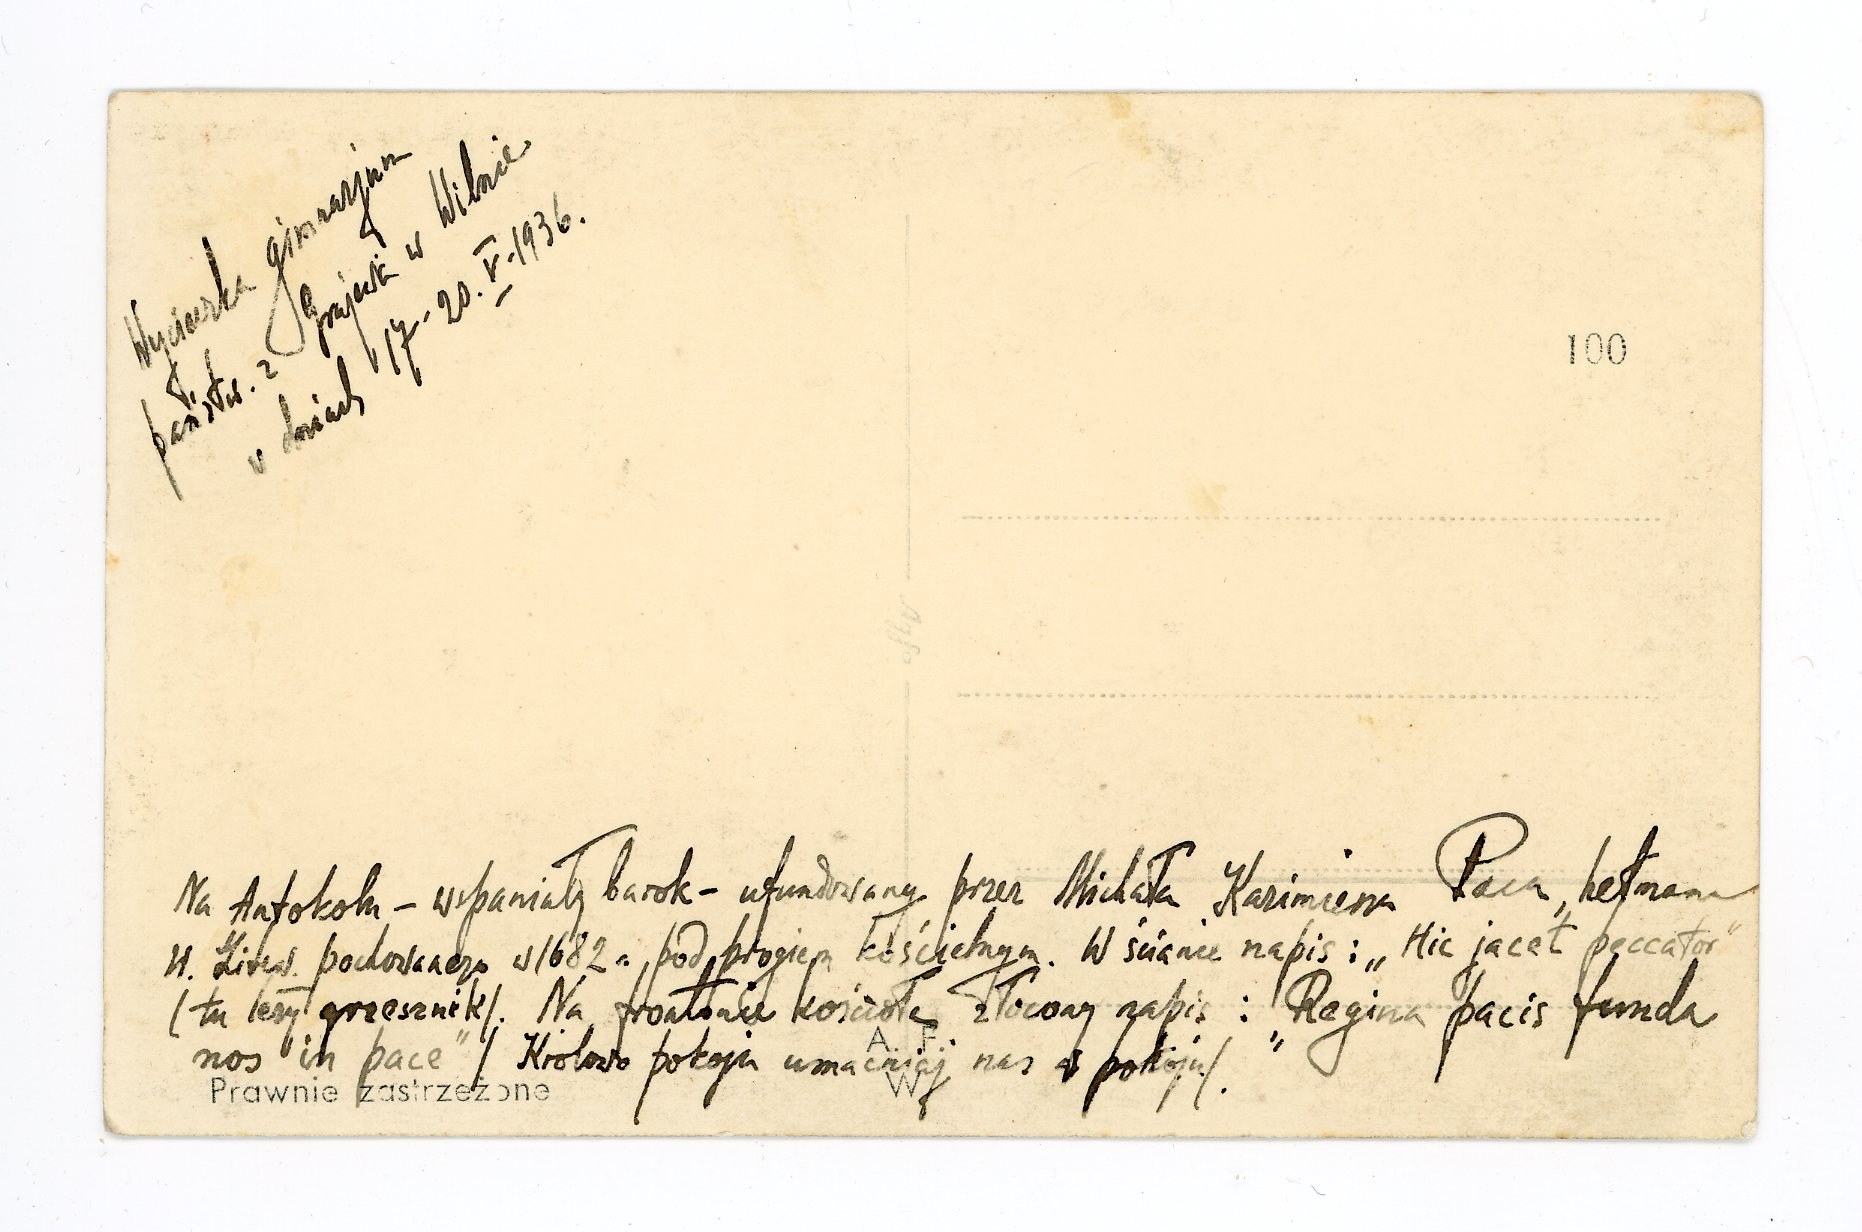 Wycieczka gimnazjum
państw. z Grajewa w Wilnie
w dniach 17-20.V.1936.
100
Na Antokolu – wspaniały barok – ufundowany przez Michała Kazimierza Paca, hetmana
W. Litew. pochowanego w 1682 r. pod progiem kościelnym. W ścianie napis: „Hic jacet peccator"
/tu leży grzesznik/. Na frontonie kościoła złocony napis: „Regina pacis funda
nos in pace" / Królowo pokoju umacniaj nas w pokoju/.
A. F.
W
Prawnie zastrzeżone